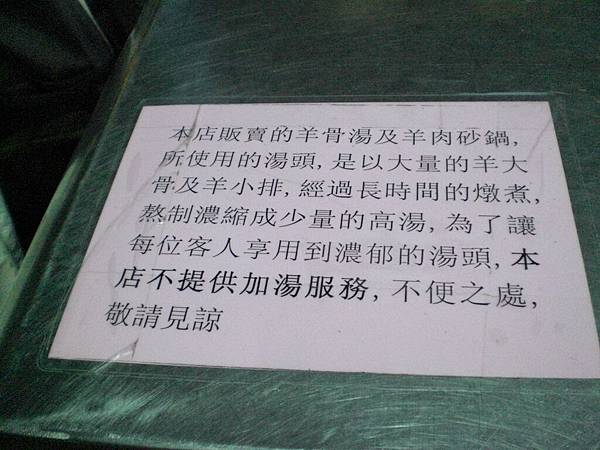 本店販賣的羊骨湯及羊肉砂鍋,
所使用的湯頭,是以大量的羊大
骨及羊小排,經過長時間的燉煮,
熬制濃縮成少量的高湯,為了讓
每位客人享用到濃郁的湯頭,本
店不提供加湯服務,不便之處,
敬請見諒